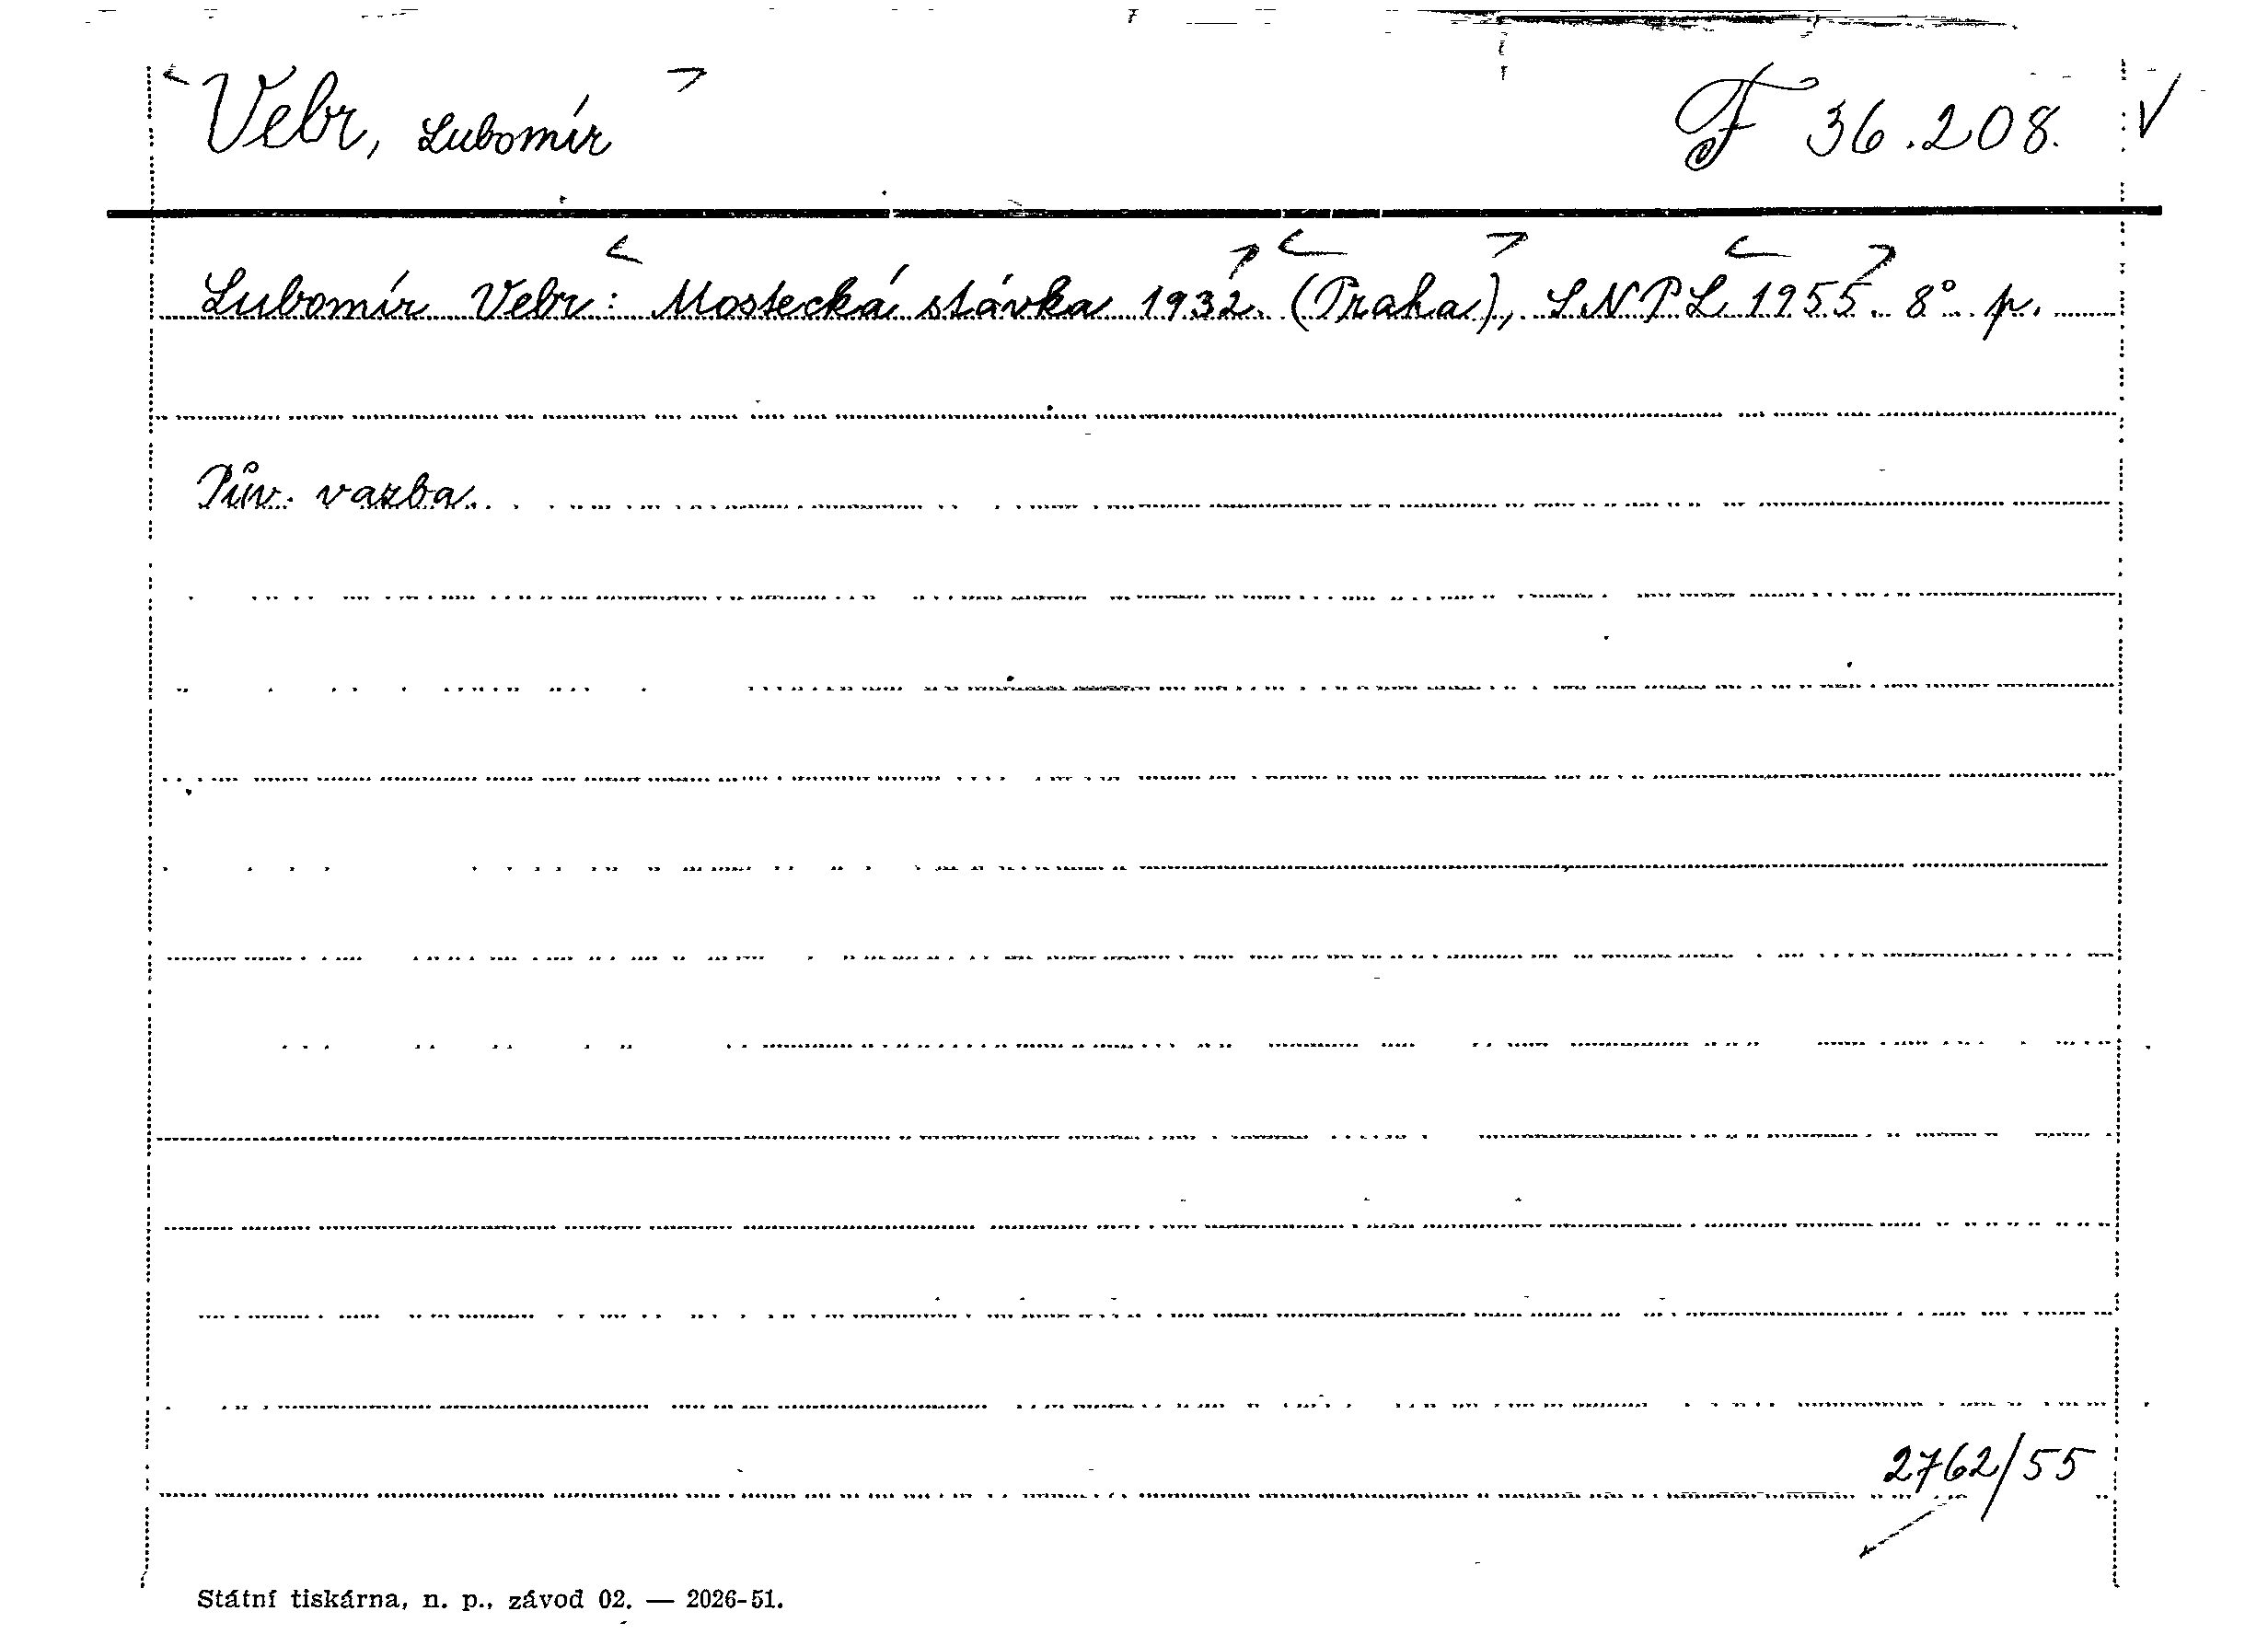 Vebr, Lubomír F 36.208. V
Lubomír Vebr: Mostecká stávka 1932. (Praha), SNPL 1955. 8° p.
Pův. vazba.
2762/55
Státní tiskárna, n. p., závod 02. — 2026-51.